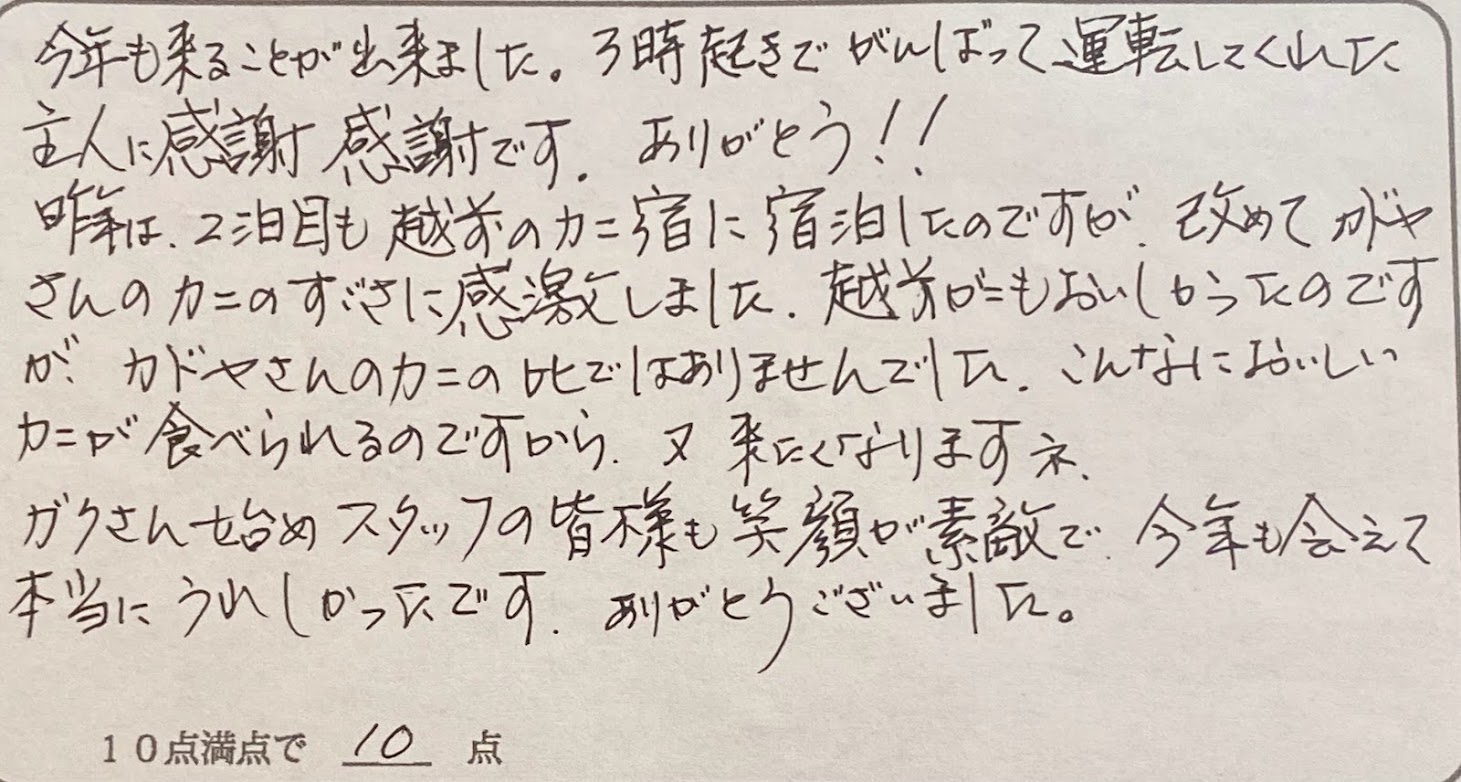 今年も来ることが出来ました。3時起きでがんばって運転してくれた
主人に感謝 感謝です。ありがとう!!
昨年は、2泊目も越前のカニ宿に宿泊したのですが、改めてカドヤ
さんのカニのすごさに感激しました。越前がにもおいしかったのです
が、カドヤさんのカニの比ではありませんでした。こんなにおいしい
カニが食べられるのですから、又来たくなりますネ。
ガクさん始めスタッフの皆様も笑顔が素敵で、今年も会えて
本当にうれしかったです。ありがとうございました。
10点満点で 10 点